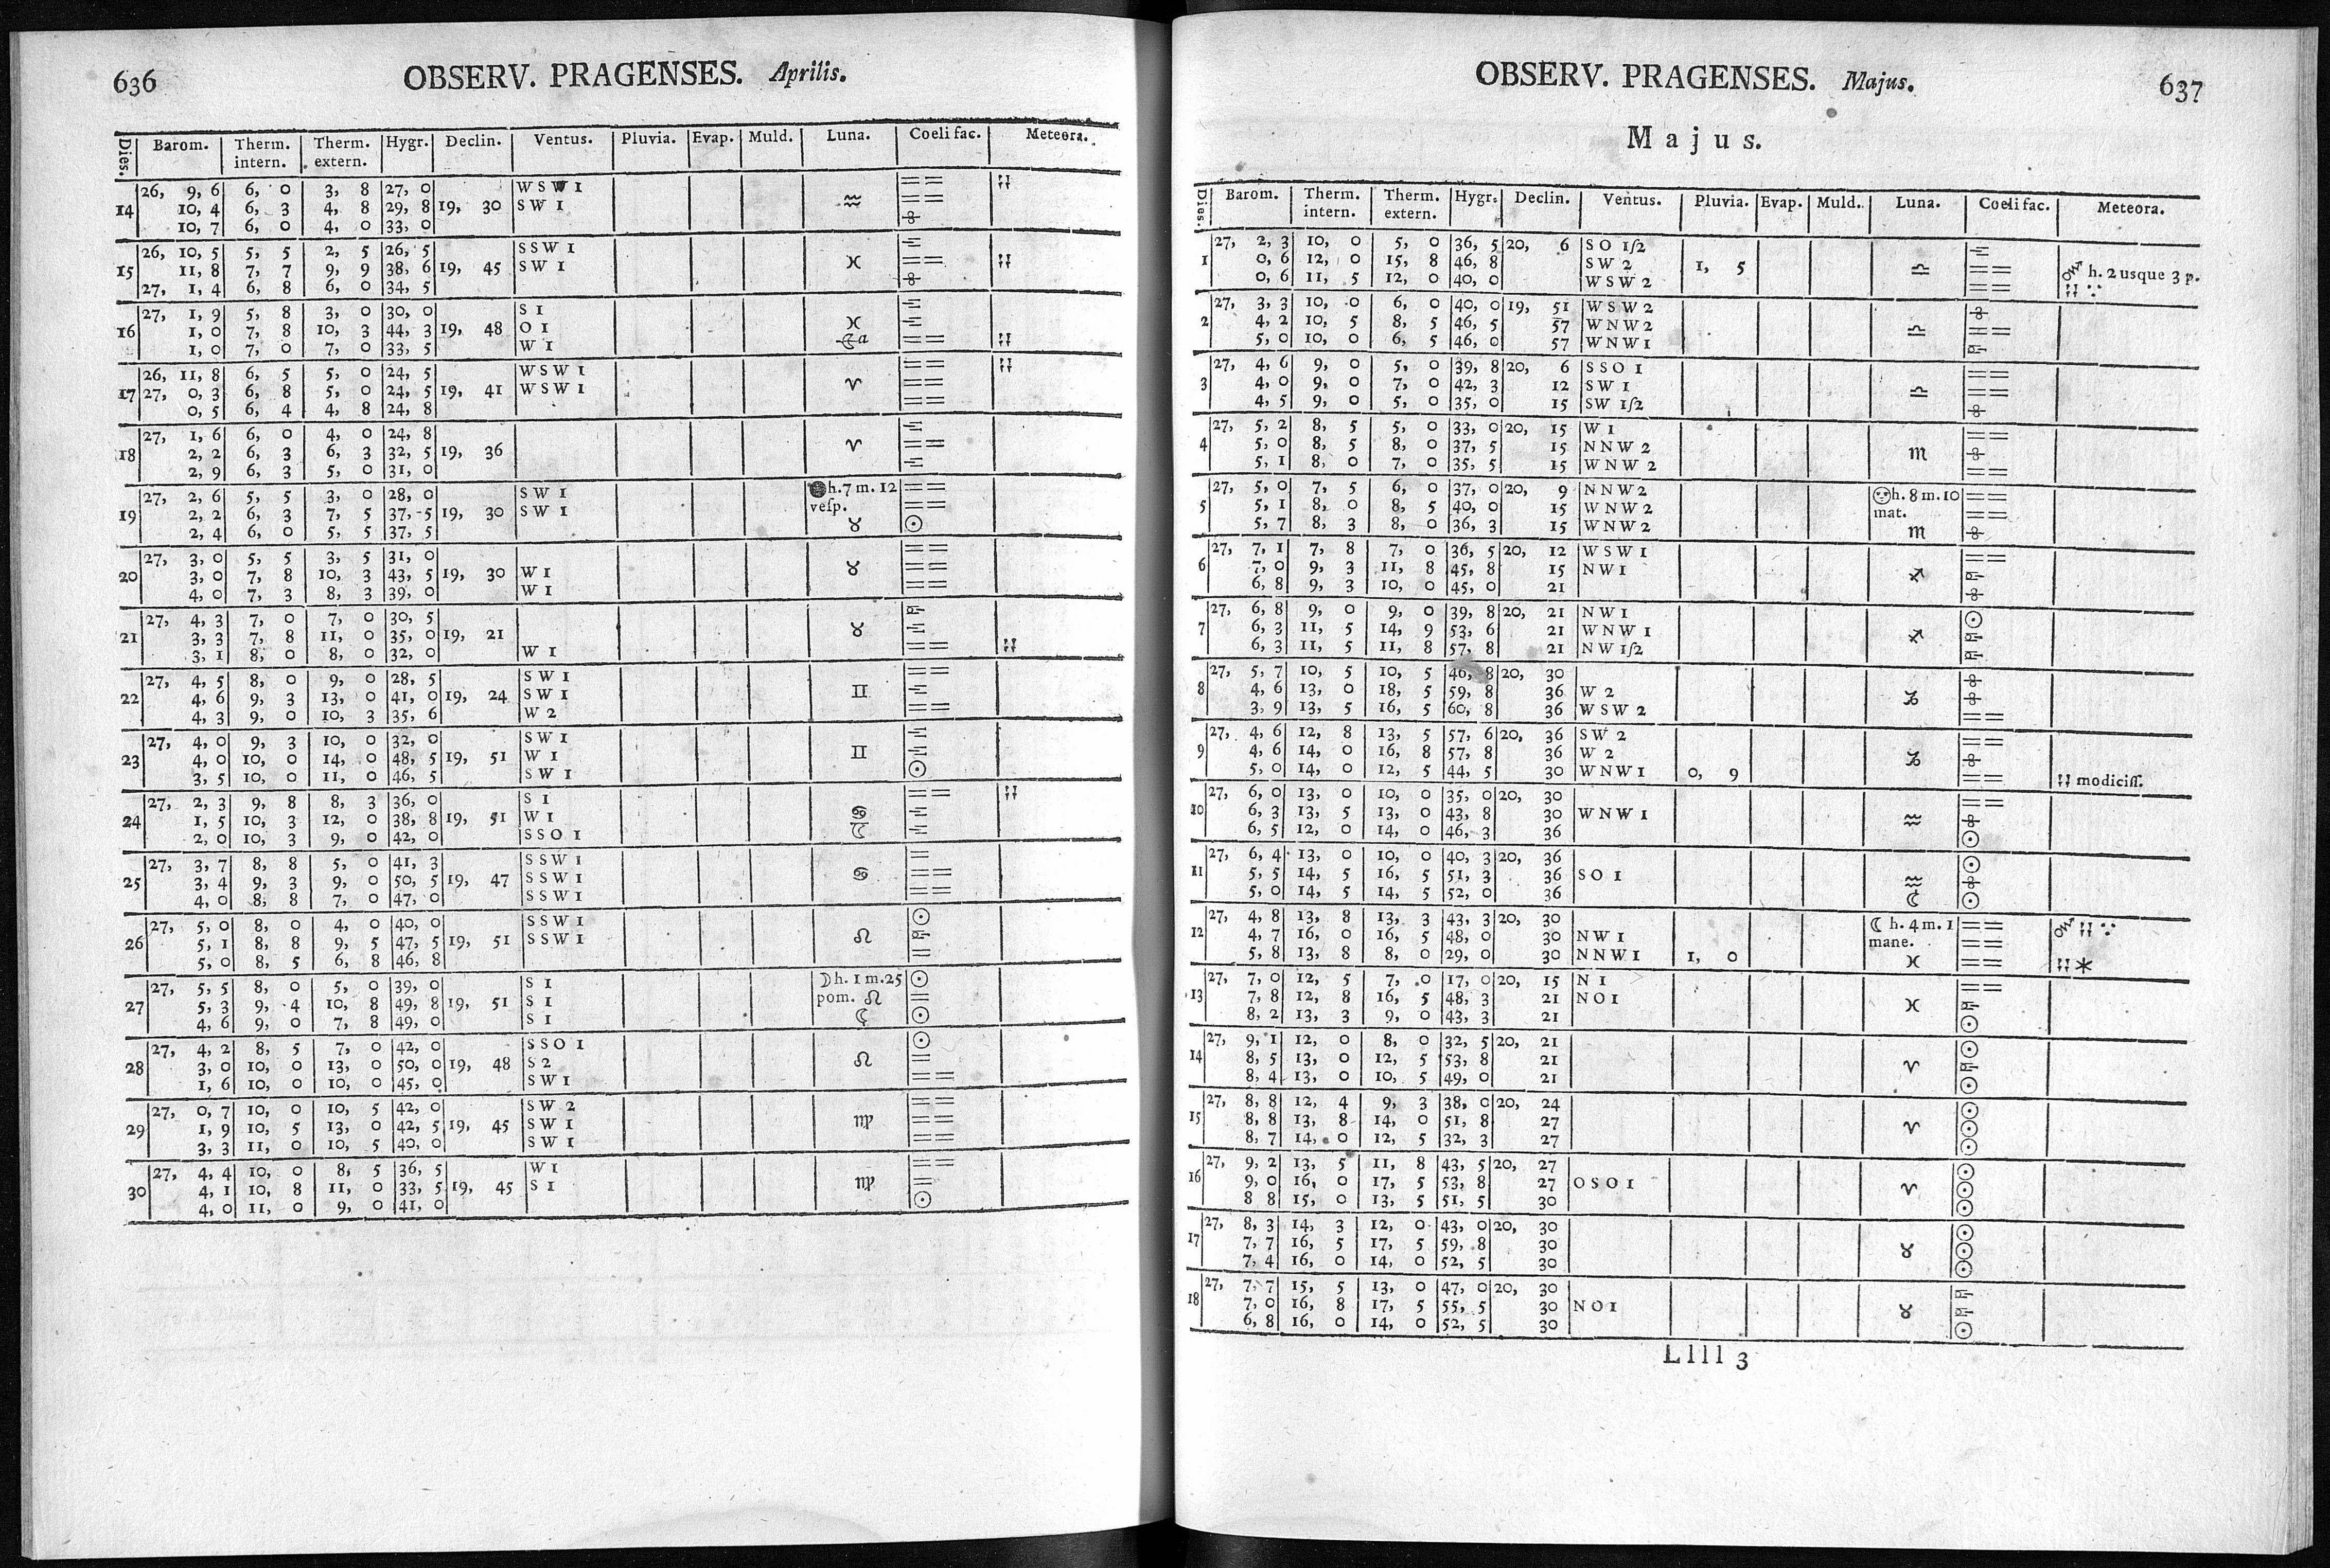 636
OBSERV. PRAGENSES. Aprilis.
Dies. Barom. Therm. intern. Therm. extern. Hygr. Declin. Ventus. Pluvia. Evap. Muld. Luna. Coeli fac. Meteora.
26, 9, 6 6, 0 3, 8 27, 0 WSW 1 == ⁝⁝
14 10, 4 6, 3 4, 8 29, 8 19, 30 SW 1 ♒ ==
10, 7 6, 0 4, 0 33, 0
26, 10, 5 5, 5 2, 5 26, 5 SSW 1
15 11, 8 7, 7 9, 9 38, 6 19, 45 SW 1 ♓ ==
27, 1, 4 6, 8 6, 0 34, 5
27, 1, 9 5, 8 3, 0 30, 0 S 1
16 1, 0 7, 8 10, 3 44, 3 19, 48 O 1 ♓
1, 0 7, 0 7, 0 33, 5 W 1 ☾a ==
26, 11, 8 6, 5 5, 0 24, 5 WSW 1 ==
17 27, 0, 3 6, 8 5, 0 24, 5 19, 41 WSW 1 ♈ ==
0, 5 6, 4 4, 8 24, 8 ==
27, 1, 6 6, 0 4, 0 24, 8
18 2, 2 6, 3 6, 3 32, 5 19, 36 ♈ ==
2, 9 6, 3 5, 0 31, 0
27, 2, 6 5, 5 3, 0 28, 0 SW 1 ● h. 7 m. 12 ==
19 2, 2 6, 3 7, 5 37, 5 19, 30 SW 1 vesp. ==
2, 4 6, 0 5, 5 37, 5 ♉ ☉
27, 3, 0 5, 5 3, 5 31, 0 ==
20 3, 0 7, 8 10, 3 43, 5 19, 30 W 1 ♉ ==
4, 0 7, 3 8, 3 39, 0 W 1 ==
27, 4, 3 7, 0 7, 0 30, 5
21 3, 3 7, 8 11, 0 35, 0 19, 21 ♉
3, 1 8, 0 8, 0 32, 0 W 1 ==
27, 4, 5 8, 0 9, 0 28, 5 SW 1 ==
22 4, 6 9, 3 13, 0 41, 0 19, 24 SW 1 ♊
4, 3 9, 0 10, 3 35, 6 W 2 ==
27, 4, 0 9, 3 10, 0 32, 0 SW 1
23 4, 0 10, 0 14, 0 48, 5 19, 51 W 1 ♊
3, 5 10, 0 11, 0 46, 5 SW 1 ☉
27, 2, 3 9, 8 8, 3 36, 0 S 1 ==
24 1, 5 10, 3 12, 0 38, 8 19, 51 W 1 ♋
2, 0 10, 3 9, 0 42, 0 SSO 1 ☾
27, 3, 7 8, 8 5, 0 41, 3 SSW 1 =
25 3, 4 9, 3 9, 0 50, 5 19, 47 SSW 1 ♋ ==
4, 0 8, 8 7, 0 47, 0 SSW 1 ==
27, 5, 0 8, 0 4, 0 40, 0 SSW 1 ☉
26 5, 1 8, 8 9, 5 47, 5 19, 51 SSW 1 ♌
5, 0 8, 5 6, 8 46, 8 =
27, 5, 5 8, 0 5, 0 39, 0 S 1 ☽ h. 1 m. 25 ☉
27 5, 3 9, 4 10, 8 49, 8 19, 51 S 1 pom. ♌ =
4, 6 9, 0 7, 8 49, 0 S 1 ☾ ☉
27, 4, 2 8, 5 7, 0 42, 0 SSO 1 ☉
28 3, 0 10, 0 13, 0 50, 0 19, 48 S 2 ♌ =
1, 6 10, 0 10, 0 45, 0 SW 1 ==
27, 0, 7 10, 0 10, 5 42, 0 SW 2 ==
29 1, 9 10, 5 13, 0 42, 5 19, 45 SW 1 ♍ ==
3, 3 11, 0 10, 5 40, 0 SW 1 ==
27, 4, 4 10, 0 8, 5 36, 5 W 1 ==
30 4, 1 10, 8 11, 0 33, 5 19, 45 S 1 ♍ =
4, 0 11, 0 9, 0 41, 0 ☉
OBSERV. PRAGENSES. Majus.
637
Majus.
Dies. Barom. Therm. intern. Therm. extern. Hygr. Declin. Ventus. Pluvia. Evap. Muld. Luna. Coeli fac. Meteora.
27, 2, 3 10, 0 5, 0 36, 5 20, 6 SO 1ſ2
1 0, 6 12, 0 15, 8 46, 8 SW 2 1, 5 ♎ == h. 2 usque 3 p.
0, 6 11, 5 12, 0 40, 0 WSW 2 ==
27, 3, 3 10, 0 6, 0 40, 0 19, 51 WSW 2
2 4, 2 10, 5 8, 5 46, 5 57 WNW 2 ♎ ==
5, 0 10, 0 6, 5 46, 0 57 WNW 1
27, 4, 6 9, 0 5, 0 39, 8 20, 6 SSO 1 ==
3 4, 0 9, 0 7, 0 42, 3 12 SW 1 ♎ ==
4, 5 9, 0 5, 0 35, 0 15 SW 1ſ2
27, 5, 2 8, 5 5, 0 33, 0 20, 15 W 1 ==
4 5, 0 8, 5 8, 0 37, 5 15 NNW 2 ♏
5, 1 8, 0 7, 0 35, 5 15 WNW 2 ==
27, 5, 0 7, 5 6, 0 37, 0 20, 9 NNW 2 h. 8 m. 10 ==
5 5, 1 8, 0 8, 5 40, 0 15 WNW 2 mat. ==
5, 7 8, 3 8, 0 36, 3 15 WNW 2 ♏
27, 7, 1 7, 8 7, 0 36, 5 20, 12 WSW 1 ==
6 7, 0 9, 3 11, 8 45, 8 15 NW 1 ♐
6, 8 9, 3 10, 0 45, 0 21
27, 6, 8 9, 0 9, 0 39, 8 20, 21 NW 1 ☉
7 6, 3 11, 5 14, 9 53, 6 21 WNW 1 ♐
6, 3 11, 5 11, 8 57, 8 21 NW 1ſ2
27, 5, 7 10, 5 10, 5 46, 8 20, 30
8 4, 6 13, 0 18, 5 59, 8 36 W 2 ♑
3, 9 13, 5 16, 5 60, 8 36 WSW 2 ==
27, 4, 6 12, 8 13, 5 57, 6 20, 36 SW 2 ==
9 4, 6 14, 0 16, 8 57, 8 36 W 2 ♑
5, 0 14, 0 12, 5 44, 5 30 WNW 1 0, 9 == modiciſſ.
27, 6, 0 13, 0 10, 0 35, 0 20, 30 ==
10 6, 3 13, 5 13, 0 43, 8 30 WNW 1 ♒
6, 5 12, 0 14, 0 46, 3 36 ☉
27, 6, 4 13, 0 10, 0 40, 3 20, 36 ☉
11 5, 5 14, 5 16, 5 51, 3 36 SO 1 ♒
5, 0 14, 5 14, 5 52, 0 36 ☾ ☉
27, 4, 8 13, 8 13, 3 43, 3 20, 30 ☾ h. 4 m. 1 ==
12 4, 7 16, 0 16, 5 48, 0 30 NW 1 mane. ==
5, 8 13, 8 8, 0 29, 0 30 NNW 1 1, 0 ♓ ==
27, 7, 0 12, 5 7, 0 17, 0 20, 15 N 1 ==
13 7, 8 12, 8 16, 5 48, 3 21 NO 1 ♓
8, 2 13, 3 9, 0 43, 3 21 ☉
27, 9, 1 12, 0 8, 0 32, 5 20, 21 ☉
14 8, 5 13, 0 12, 5 53, 8 21 ♈
8, 4 13, 0 10, 5 49, 0 21 ☉
27, 8, 8 12, 4 9, 3 38, 0 20, 24 ☉
15 8, 8 13, 8 14, 0 51, 8 27 ♈ ☉
8, 7 14, 0 12, 5 32, 3 27 ☉
27, 9, 2 13, 5 11, 8 43, 5 20, 27 ☉
16 9, 0 16, 0 17, 5 53, 8 27 OSO 1 ♈ ☉
8 8 15, 0 13, 5 51, 5 30 ☉
27, 8, 3 14, 3 12, 0 43, 0 20, 30 ☉
17 7, 7 16, 5 17, 5 59, 8 30 ♉ ☉
7, 4 16, 0 14, 0 52, 5 30 ☉
27, 7, 7 15, 5 13, 0 47, 0 20, 30
18 7, 0 16, 8 17, 5 55, 5 30 NO 1 ♉
6, 8 16, 0 14, 0 52, 5 30 ☉
Llll 3